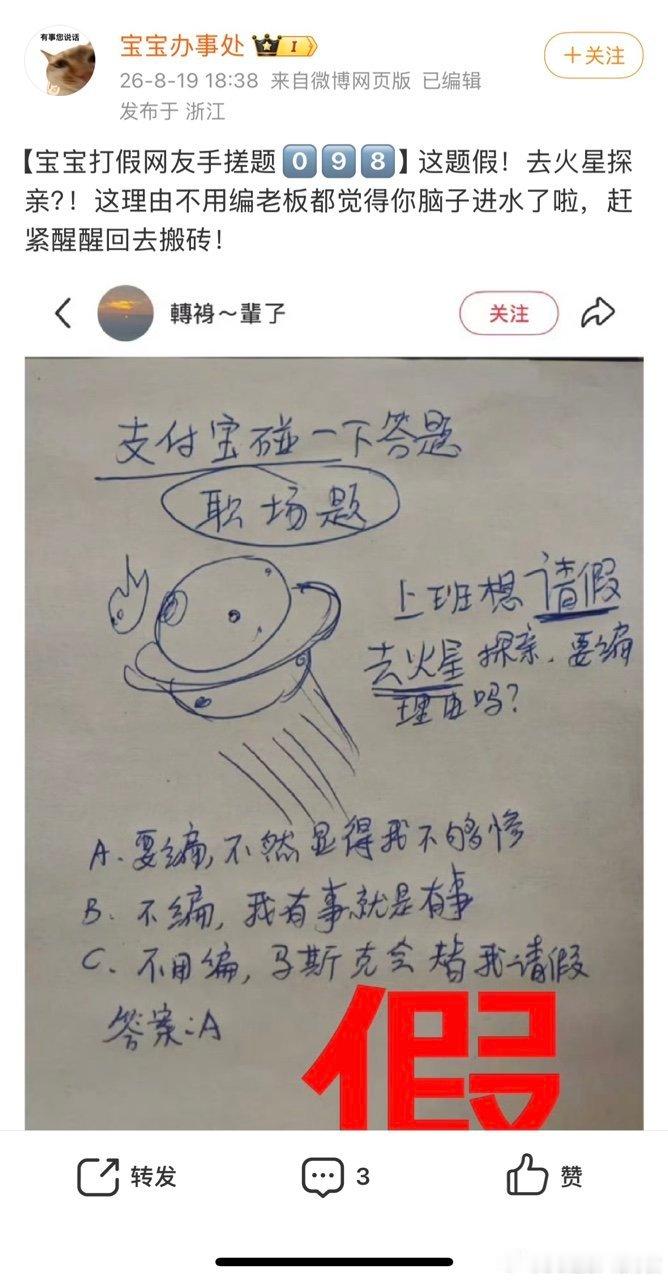 有事您说话
宝宝办事处
I
＋关注
26-8-19 18:38 来自微博网页版 已编辑
发布于 浙江
【宝宝打假网友手搓题098】这题假！去火星探
亲?！这理由不用编老板都觉得你脑子进水了啦，赶
紧醒醒回去搬砖！
轉裑～輩子
关注
支付宝碰一下答题
职场题
上班想请假
去火星探亲．要编
理由吗？
A．要编，不然显得我不够惨
B．不编，我有事就是有事
C．不用编，马斯克会替我请假
答案：A
假
转发
3
赞